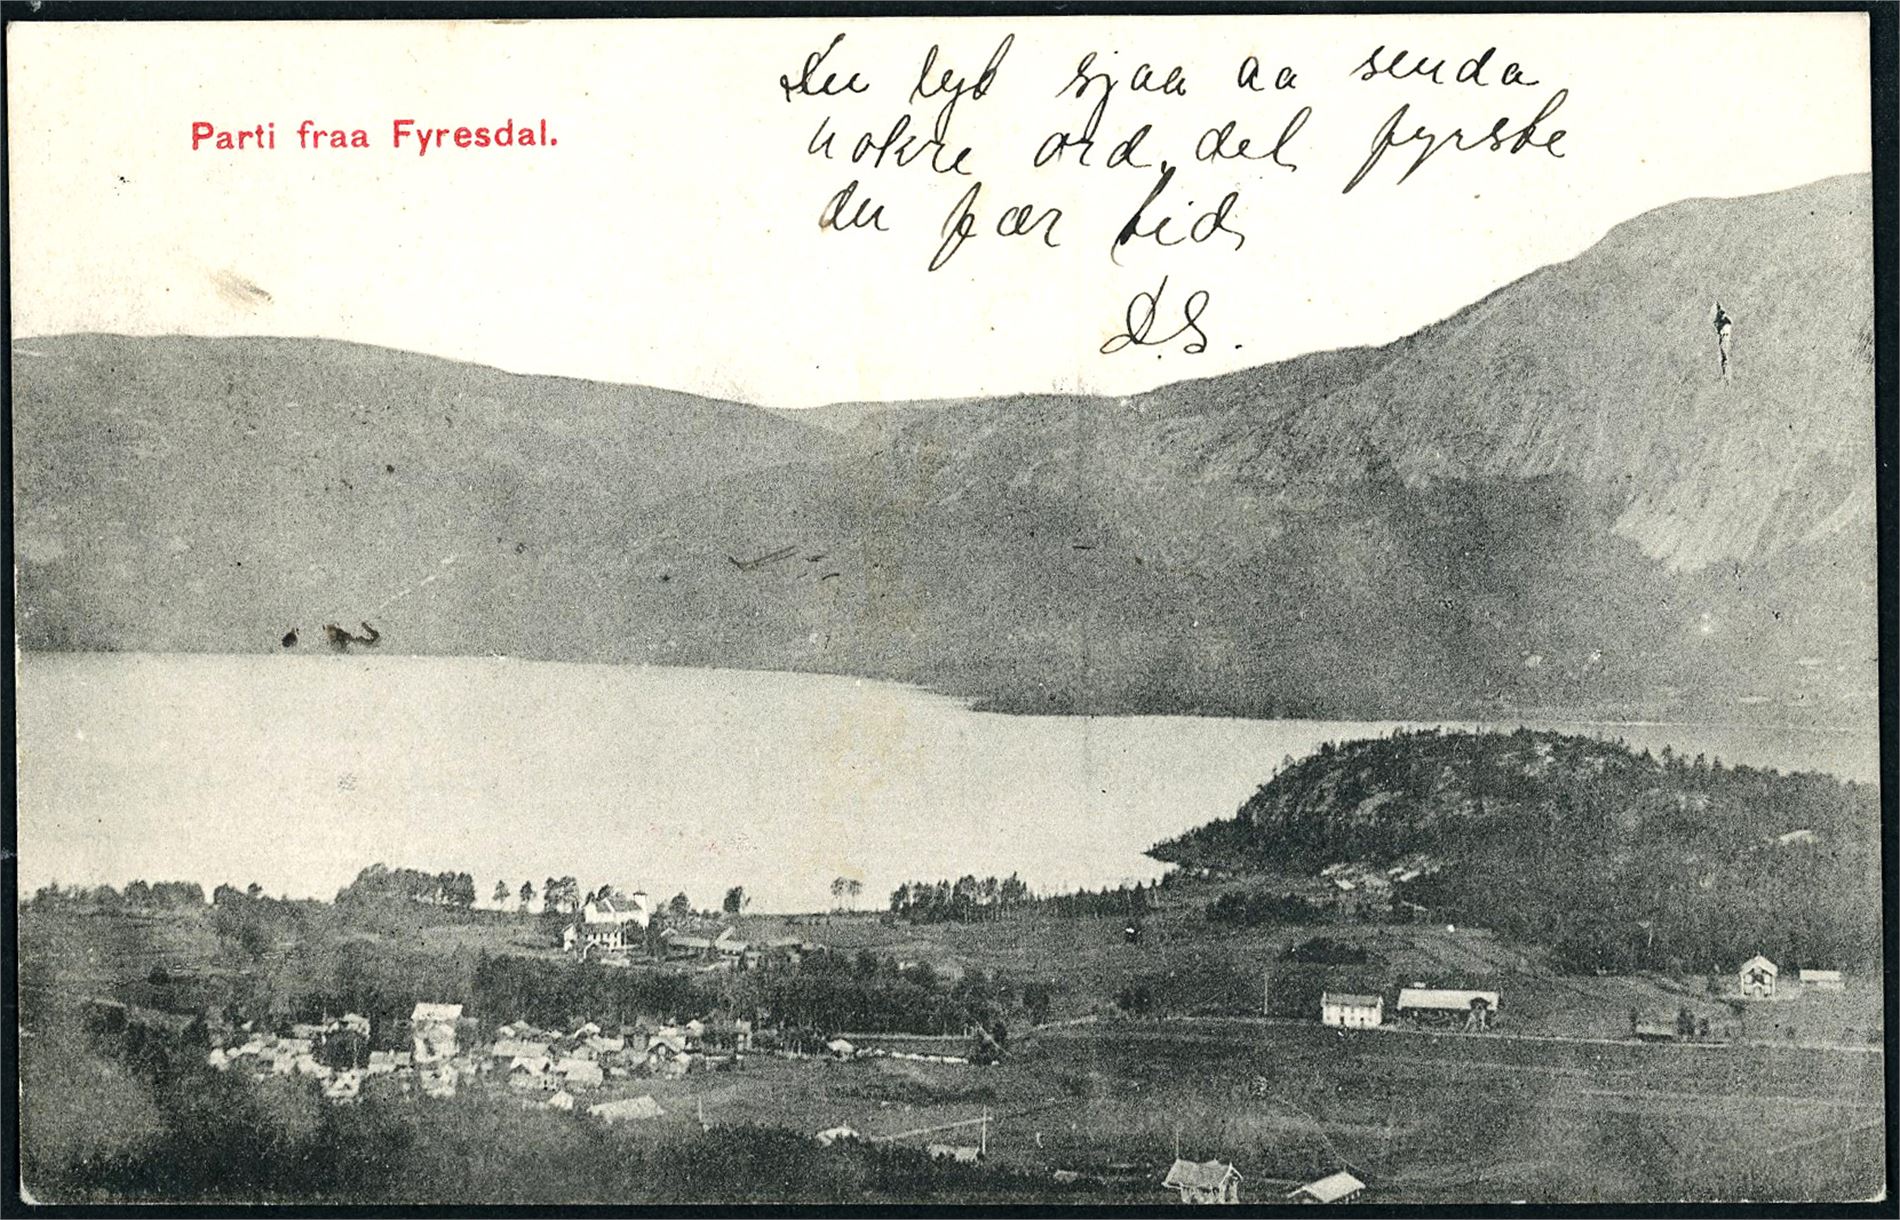 Parti fraa Fyresdal.
Du lyt sjaa aa senda
nokre ord, det fyrste
du fær tid
D.S.